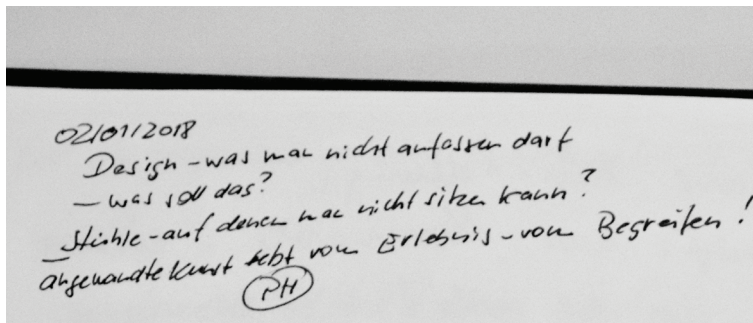 02/01/2018
Design - was man nicht anfassen darf
- was soll das?
- Stühle - auf denen man nicht sitzen kann?
angewandte Kunst lebt vom Erlebnis - vom Begreifen!
PH